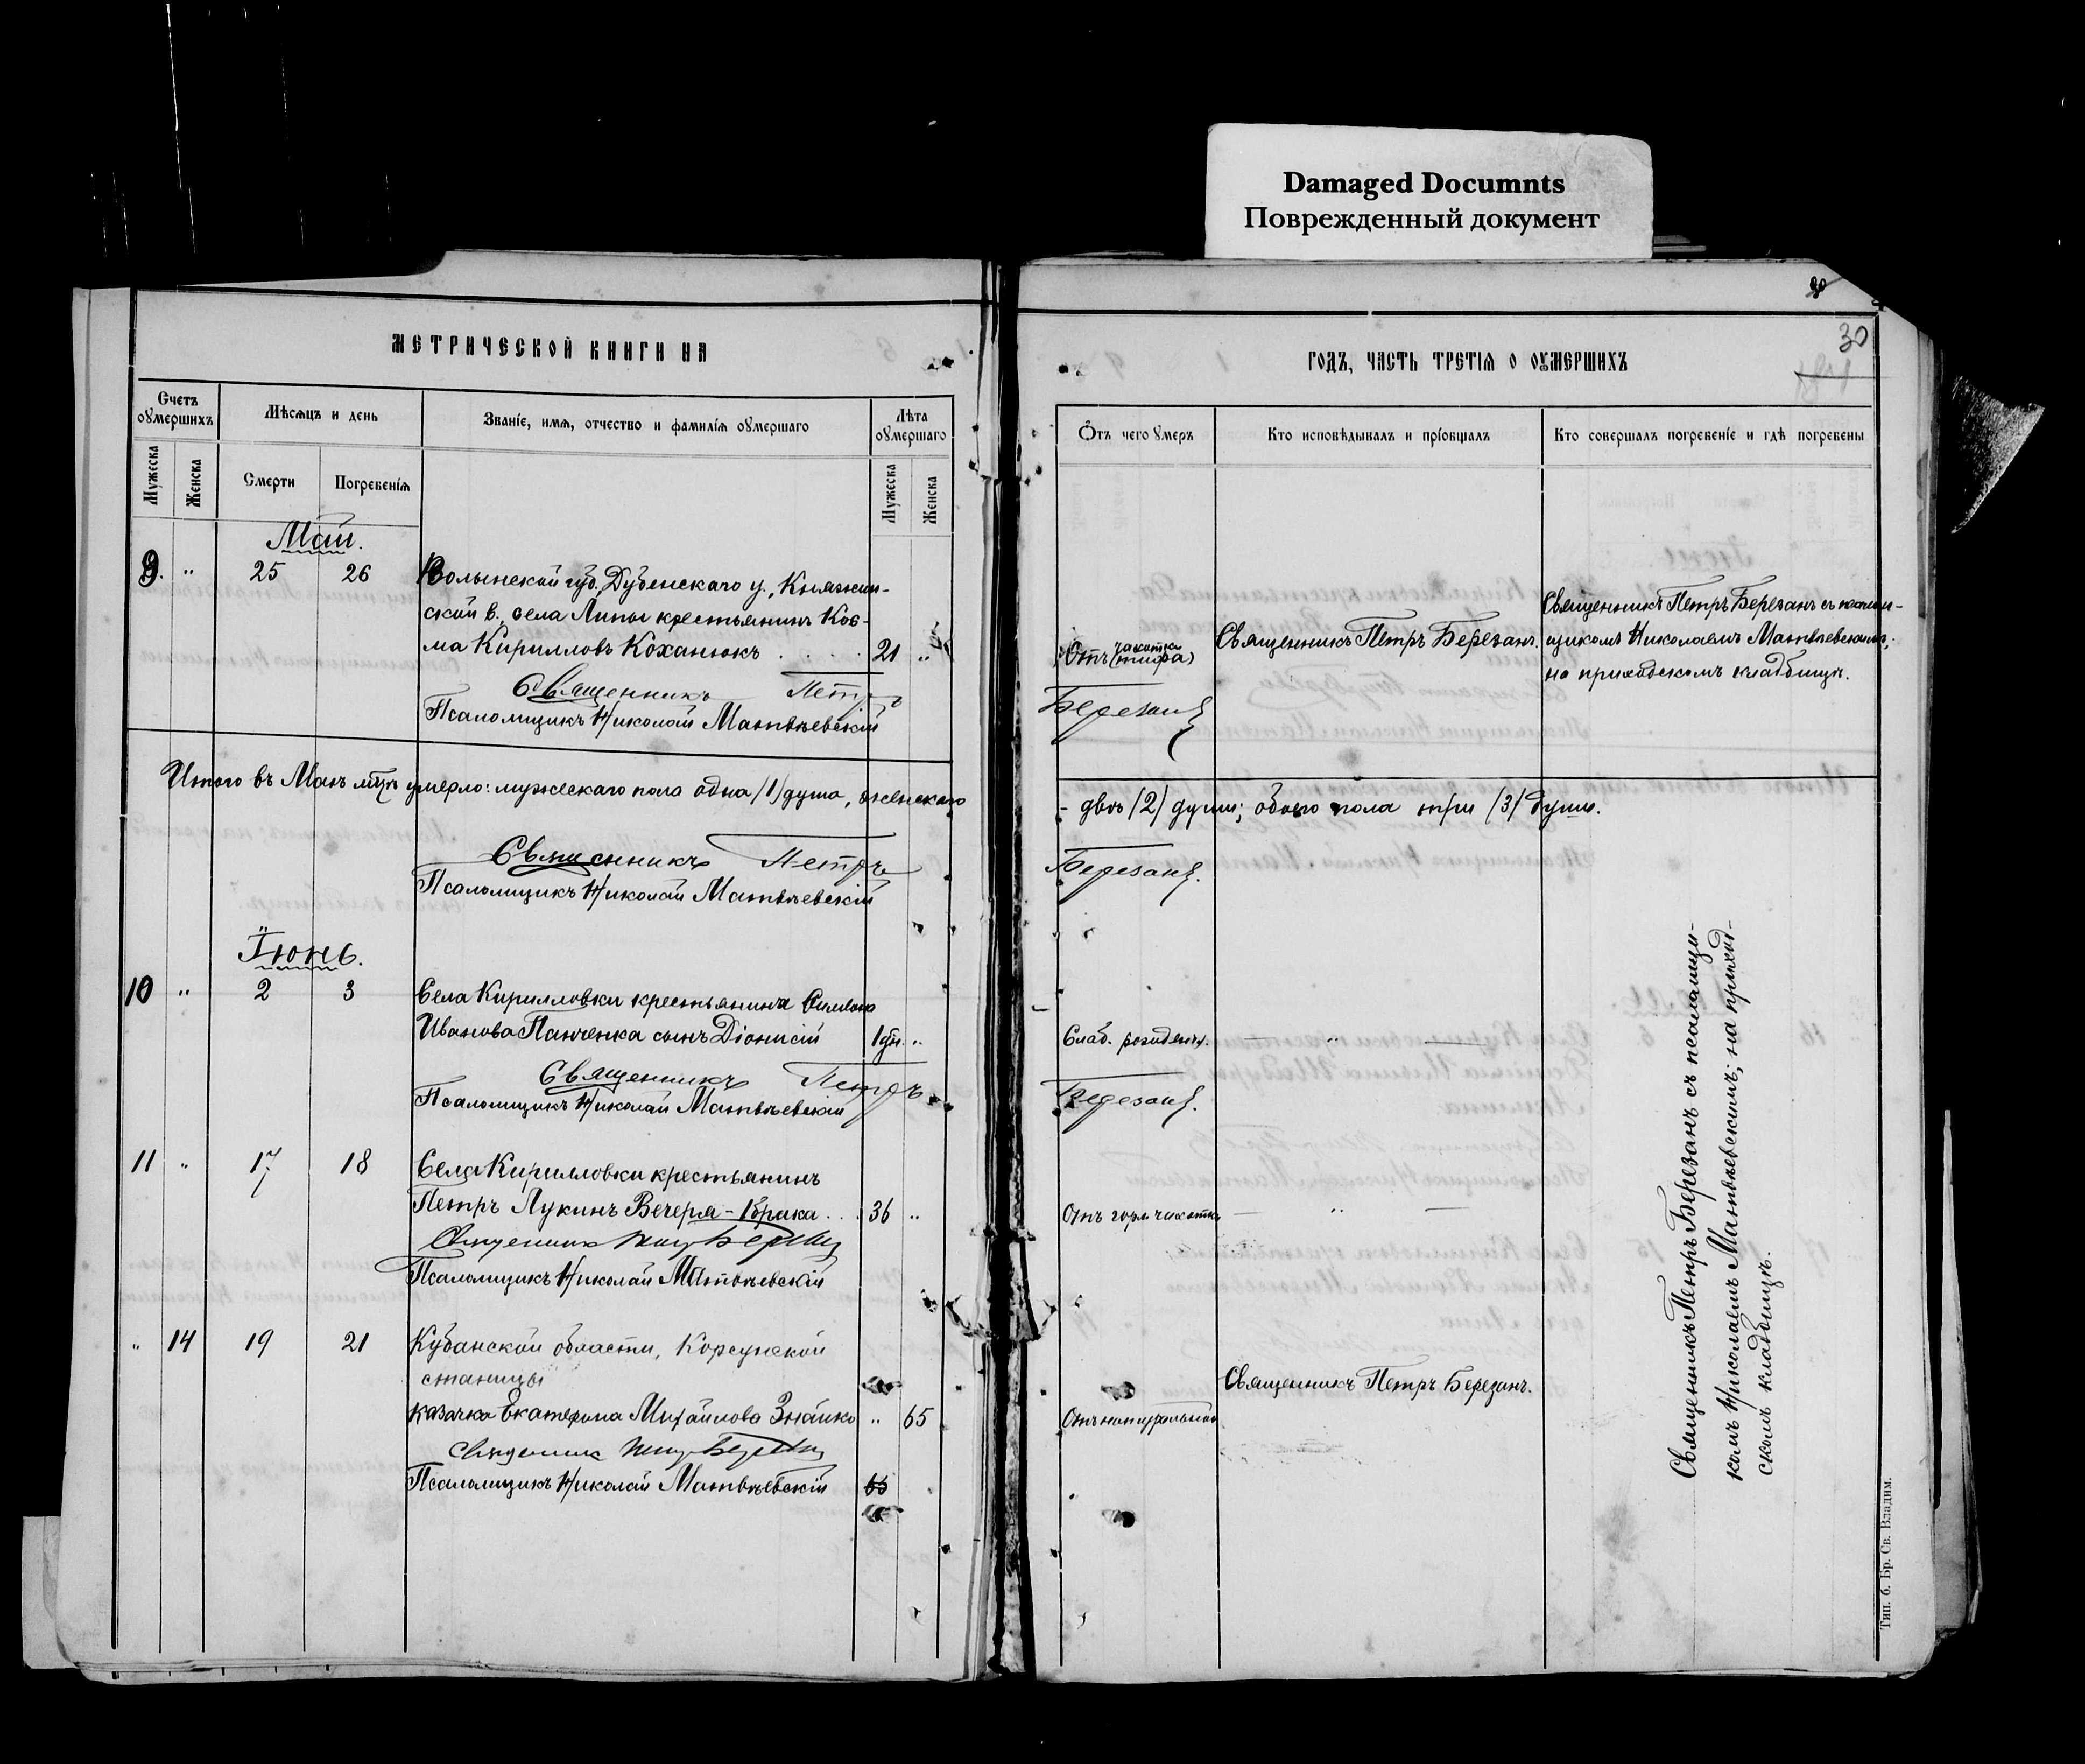 Damaged Documnts
Поврежденный документ
МЕТРИЧЕСКОЙ КНИГИ НА
Счетъ оумершихъ
Мѣсяцъ и день
Званіе, имя, отчество и фамилія оумершаго
Лѣта оумершаго
Мужеска
Женска
Смерти
Погребенія
Мужеска
Женска
Май.
9. " 25 26 Волынской губ., Дубенскаго у., Княжин-
ской в. села Липы крестьянинъ Коз-
ма Кирилловъ Коханюкъ . . . . 21 "
Священникъ Петръ
Псаломщикъ Николай Матвѣевскій
Итого въ Маѣ мцѣ умерло: мужескаго пола одна /1/ душа, женскаго
Священникъ Петръ
Псаломщикъ Николай Матвѣевскій
Іюнь.
10 " 2 3 Села Кирилловки крестьянина
Иванова Панченка сынъ Діонисій 1 дн. "
Священникъ Петръ
Псаломщикъ Николай Матвѣевскій
11 " 17 18 Села Кирилловки крестьянинъ
Петръ Лукинъ Вечеря - 1 брака . . 36 "
Священникъ Петръ Березанъ
Псаломщикъ Николай Матвѣевскій
" 14 19 21 Кубанской области, Корсунской
станицы
казачка Екатерина Михайлова Знайко " 65
Священникъ Петръ Березанъ
Псаломщикъ Николай Матвѣевскій 65
30
ГОДЪ, ЧАСТЬ ТРЕТІЯ О ОУМЕРШИХЪ
Отъ чего умеръ
Кто исповѣдывалъ и пріобщалъ
Кто совершалъ погребеніе и гдѣ погребены
чахотки
Отъ (тифа)
Священникъ Петръ Березанъ.
Священникъ Петръ Березанъ съ псалом-
щикомъ Николаемъ Матвѣевскимъ;
на приходскомъ кладбищѣ.
Березанъ
- двѣ /2/ души; обоего пола три /3/ души.
Березанъ.
Слаб. рожденія. — " —
Березанъ.
Отъ горл. чахотки — " —
Священникъ Петръ Березанъ.
Отъ натуральной
Священникъ Петръ Березанъ съ псаломщи-
комъ Николаемъ Матвѣевскимъ; на приход-
скомъ кладбищѣ.
Тип. б. Бр. Св. Владим.